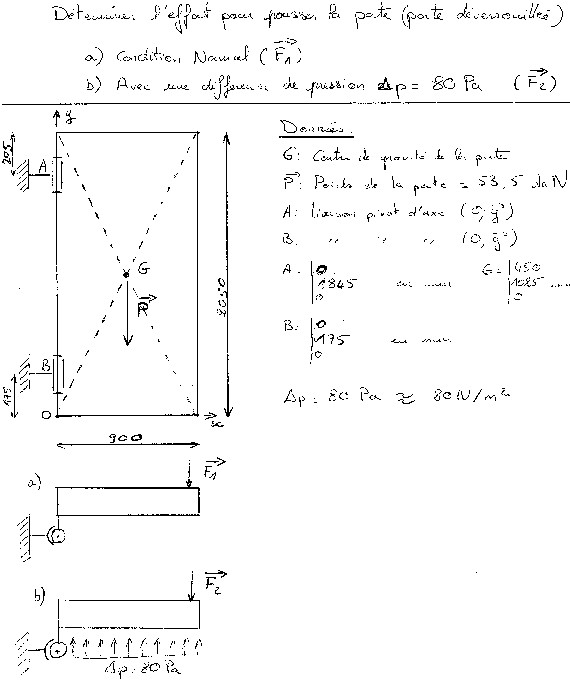 Déterminer l'effort pour pousser la porte (porte déverrouillée)
a) Condition Normal (F1)
b) Avec une différence de pression Δp = 80 Pa (F2)
Données:
G: Centre de gravité de la porte
P: Poids de la porte = 53,5 daN
A: Liaison pivot d'axe (O, y)
B: " " " (O, y)
A: 0 1845 0 en mm
G = 450 1025 0 mm
B: 0 175 0 en mm
Δp = 80 Pa ≈ 80 N/m²
y
205
A
G
P
2050
B
175
O
x
900
a)
F1
b)
F2
Δp = 80 Pa